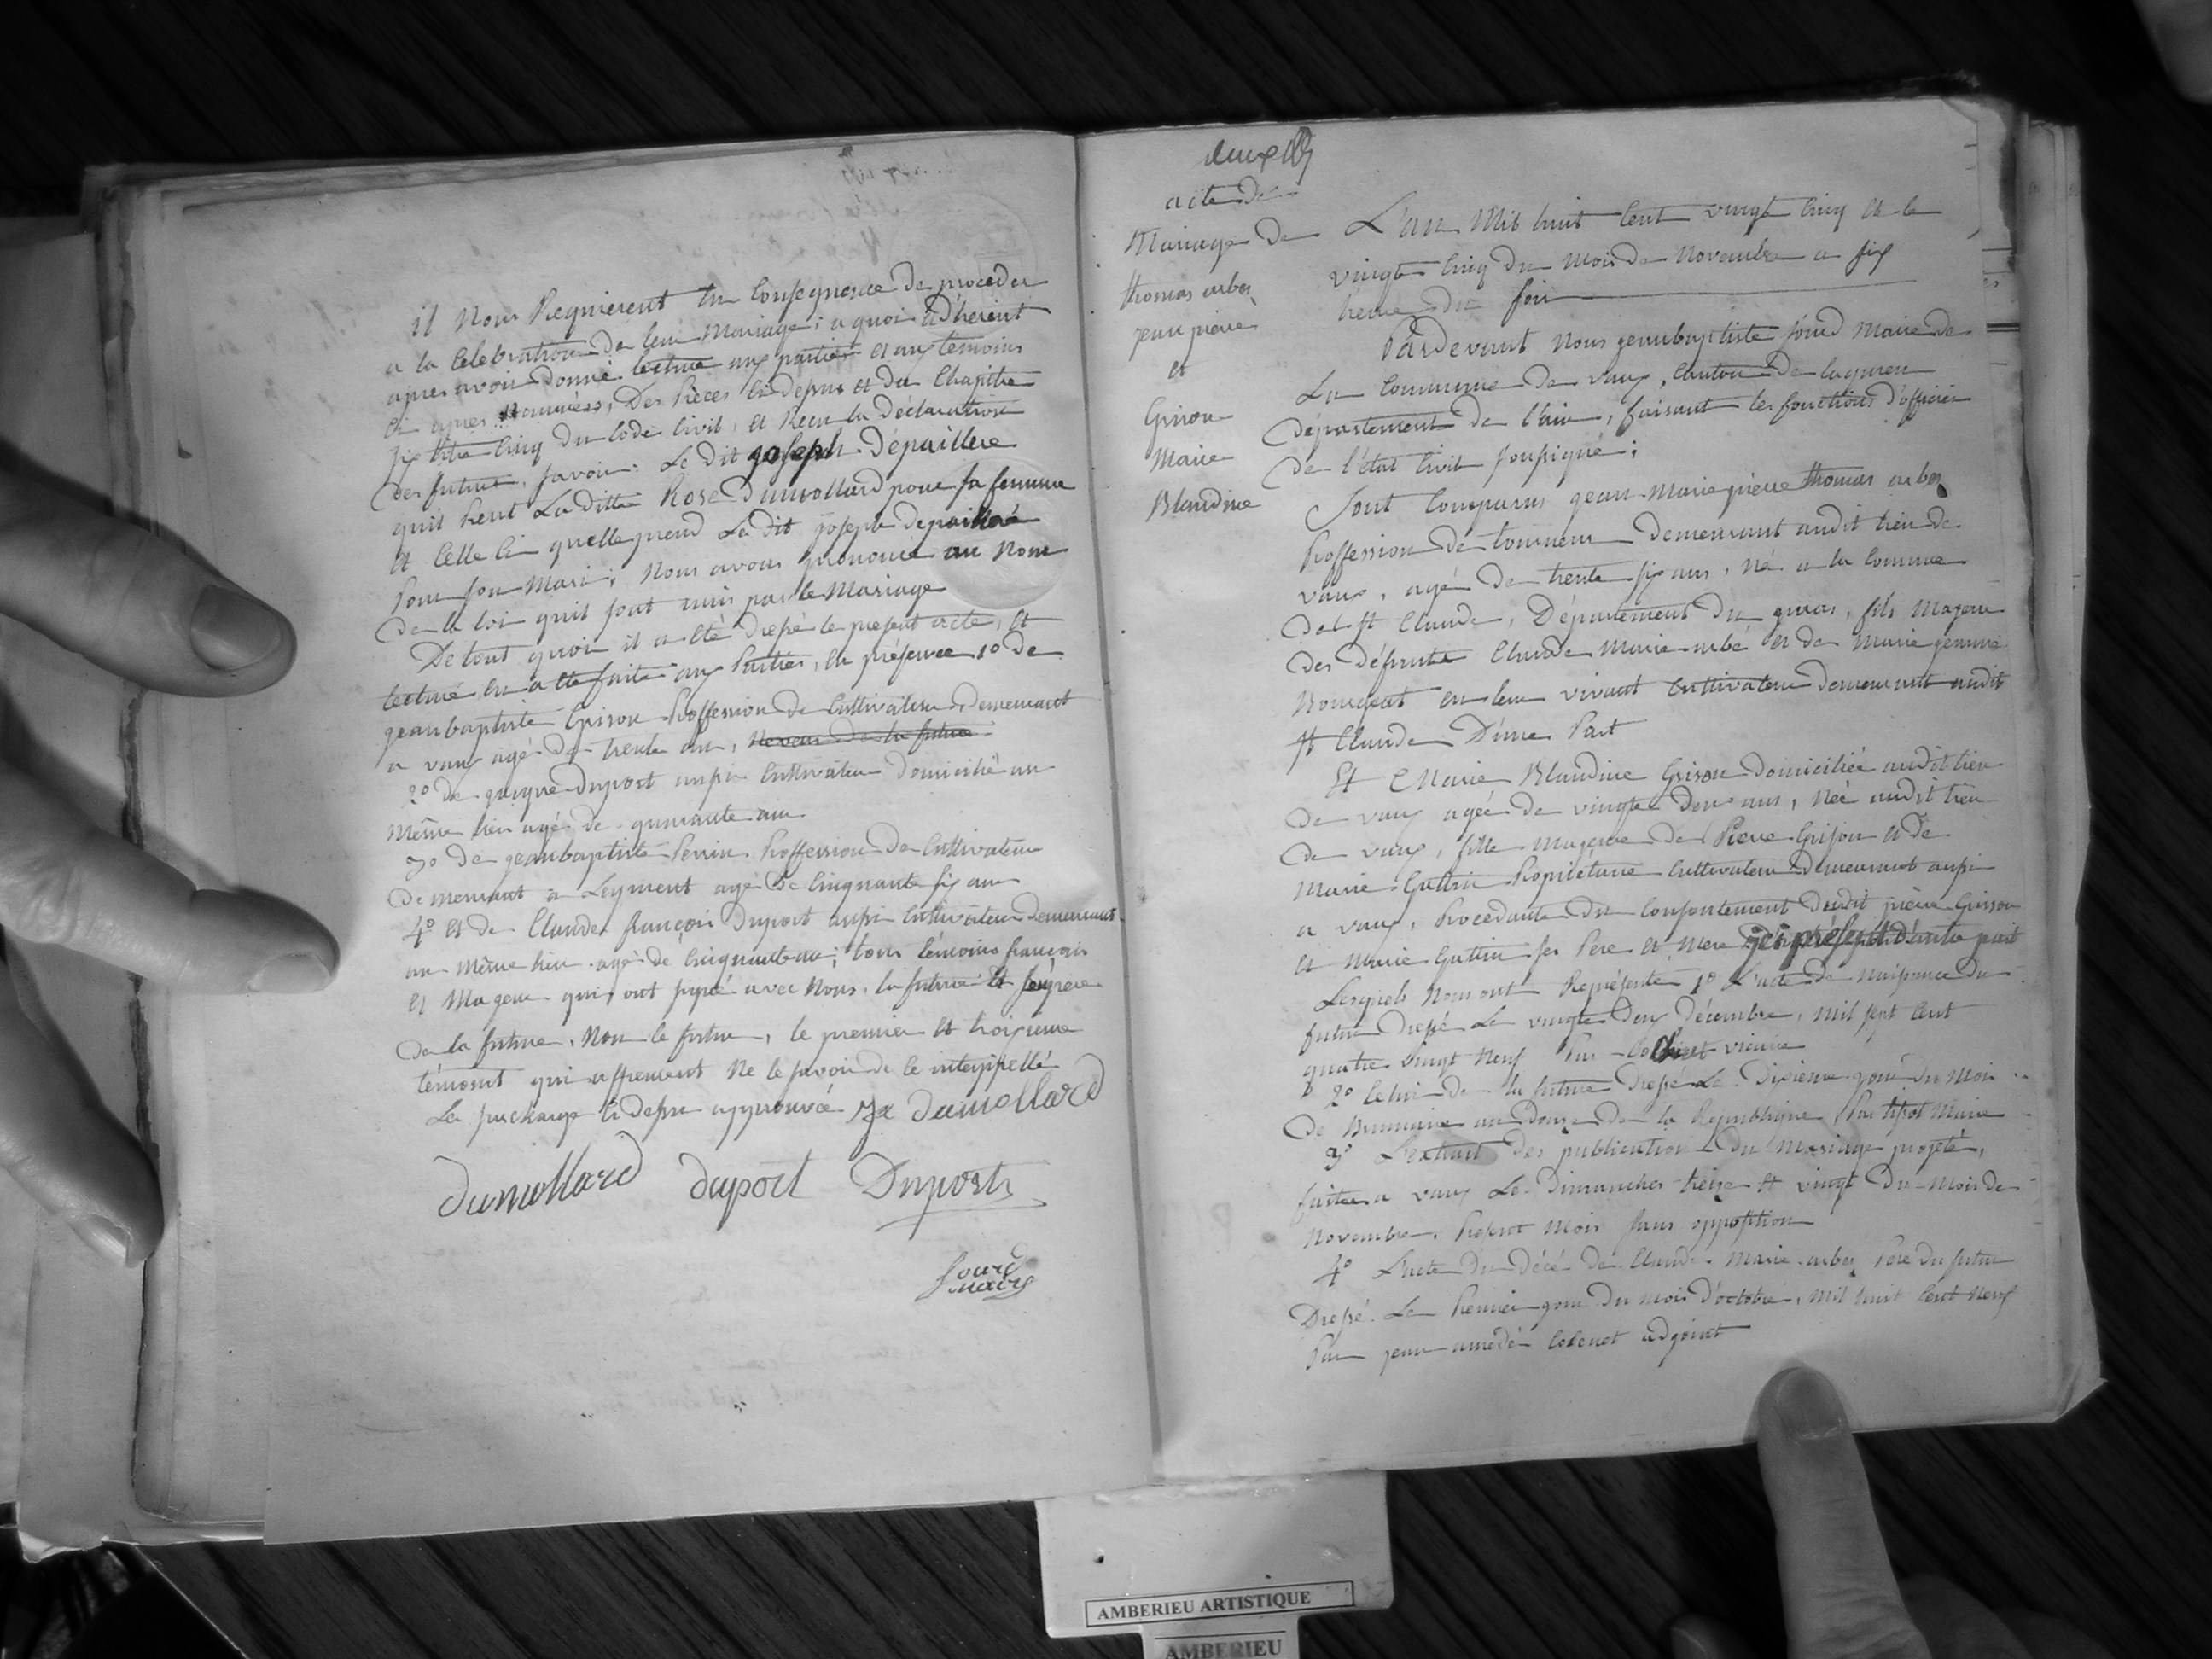 il nous Requierent En Consequence de proceder
a la Celebration de leur Mariage; a quoi adhérent
apres avoir donné lecture aux parties et aux temoins
Ci apres nommées, Des Pièces Ci depus et du Chapitre
six titre Cinq du Code Civil, et Recu la déclaration
des futurs, savoir: Le dit joseph Dépaillere
qu'il Prent La ditte Rose Dumollard pour sa femme
et Celle Ci quelle prend Le dit joseph depaillere
Pour son Mari; Nous avons prononcé au Nom
De la loi quil sont unis par le Mariage
De tout quoi il a été drepé le present acte, et
lecture en a été faite aux Parties, En présence 1o de
geanbaptiste Grison Proffession de Cultivateur Demeurant
a vaux agé de trente ans, neveu de la future
2o de jacque Duport aupi Cultivateur Domicilié au
même lieu agé de quarante ans
3o De geanbaptiste Perrin Proffession de Cultivateur
Demeurant a Leyment agé de Cinquante six ans
4o et de Claude françois Duport aupi Cultivateur Demeurant
au même lieu agé de Cinquante ans; tous témoins français
et Mageur qui ont signé avec Nous. la future et
de la future, Non le futur, le premier et troisieme
témoins qui affirment Ne le savoir de le interppellé
La surcharge Ci depus approuvé Dumollard
Dumollard duport Duport
Sourd
Maire
acte de
Mariage de
thomas arbey
jean pierre
et
Grison
Marie
Blandine
L'an Mil huit Cent vingt Cinq et le
vingt Cinq du Mois de Novembre a six
heure du soir
Pardevant Nous geanbaptiste Sourd Maire de
La Commune de vaux, Canton de lagnieu
Département de l'ain, faisant les fonctions d'officier
de l'état Civil soussigné;
Sont Comparus gean Marie pierre thomas arbey
Proffession de tourneur Demeurant audit lieu de
vaux, agé De trente six ans, Né a la Commune
de St Claude, Département du guras, fils Mageur
Des défunts Claude Marie arbé et de Marie
en leur vivant Cultivateur demeurant audit
St Claude D'une Part
Et Marie Blandine Grison domiciliée audit lieu
De vaux agée de vingt Deux ans, Née audit lieu
De vaux, fille Mageure de Pierre Grison et de
Marie Guttin Propriétaire Cultivateur Demeurant aupi
a vaux, Procedante du Consentement Dudit pierre Grison
et Marie Guttin ses Pere et Mere ici présent d'autre part
Lesquels Nous ont Représenté 1o L'acte de Naissance du
futur Drepé Le vingt Deux décembre, mil sept Cent
quatre vingt Neuf Par vicaire
2o Celui de la future Drepé Le Dixieme jour du Mois
De Brumaire an Douze de la Republique Par tipot Maire
3o L'extrait des publication du Mariage projeté,
faites a vaux Le Dimanches treize et vingt du Mois de
Novembre, Présent Mois sans opposition
4o L'acte du Décé de Claude Marie arbey Père du futur
Drepé Le Premier jour Du mois D'octobre, mil huit Cent Neuf
Par jean amedé adjoint
AMBERIEU ARTISTIQUE
AMBERIEU